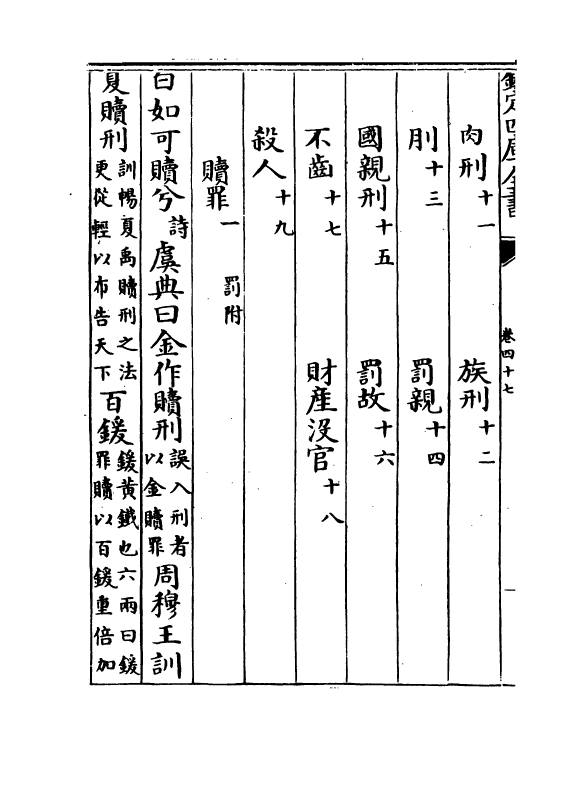 欽定四庫全書
卷四十七
肉刑十一 族刑十二
刖十三 罰親十四
國親刑十五 罰故十六
不齒十七 財產沒官十八
殺人十九
贖罪一 罰附
曰如可贖兮詩虞典曰金作贖刑誤入刑者以金贖罪周穆王訓
夏贖刑訓暢夏禹贖刑之法更從輕以布告天下百鍰鍰黃鐵也六兩曰鍰罪贖以百鍰重倍加